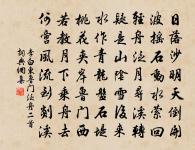 日落沙明天倒開
波搖石動水縈回
輕舟泛月尋溪轉
疑是山陰雪後來
水作青龍盤石堤
桃花夾岸魯門西
若教月下乘舟去
何啻風流到剡溪
李白東魯門泛舟二首